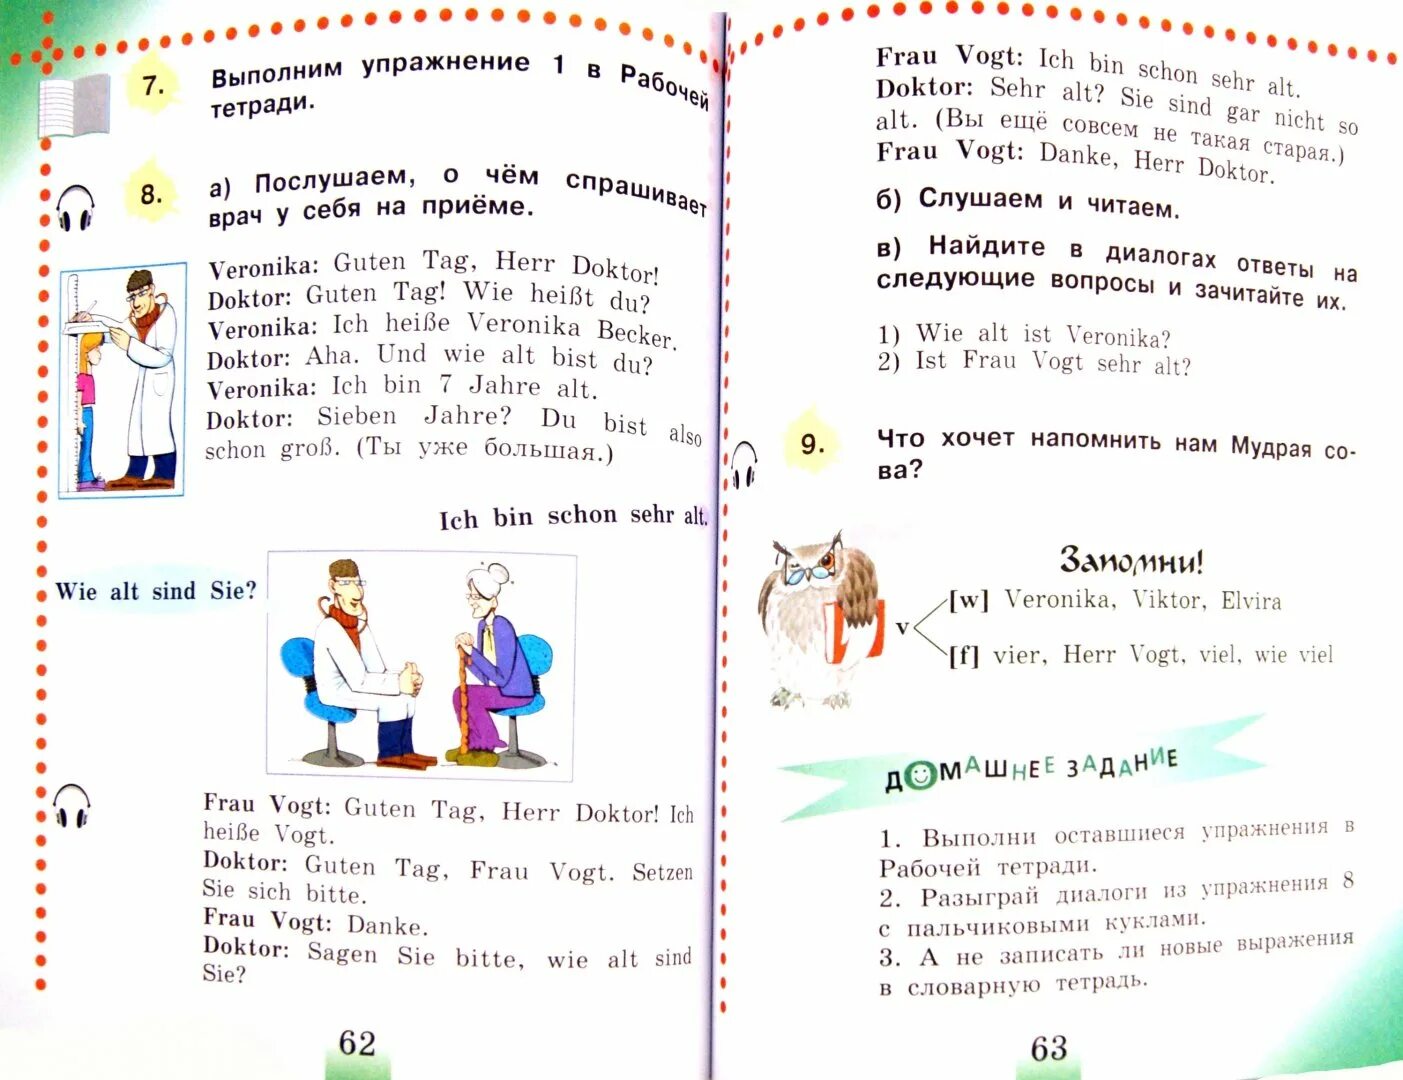 7. Выполним упражнение 1 в Рабочей
тетради.
8. а) Послушаем, о чём спрашивает
врач у себя на приёме.
Veronika: Guten Tag, Herr Doktor!
Doktor: Guten Tag! Wie heißt du?
Veronika: Ich heiße Veronika Becker.
Doktor: Aha. Und wie alt bist du?
Veronika: Ich bin 7 Jahre alt.
Doktor: Sieben Jahre? Du bist also
schon groß. (Ты уже большая.)
Ich bin schon sehr alt.
Wie alt sind Sie?
Frau Vogt: Guten Tag, Herr Doktor! Ich
heiße Vogt.
Doktor: Guten Tag, Frau Vogt. Setzen
Sie sich bitte.
Frau Vogt: Danke.
Doktor: Sagen Sie bitte, wie alt sind
Sie?
62
Frau Vogt: Ich bin schon sehr alt.
Doktor: Sehr alt? Sie sind gar nicht so
alt. (Вы ещё совсем не такая старая.)
Frau Vogt: Danke, Herr Doktor.
б) Слушаем и читаем.
в) Найдите в диалогах ответы на
следующие вопросы и зачитайте их.
1) Wie alt ist Veronika?
2) Ist Frau Vogt sehr alt?
9. Что хочет напомнить нам Мудрая со-
ва?
Запомни!
[w] Veronika, Viktor, Elvira
v
[f] vier, Herr Vogt, viel, wie viel
ДОМАШНЕЕ ЗАДАНИЕ
1. Выполни оставшиеся упражнения в
Рабочей тетради.
2. Разыграй диалоги из упражнения 8
с пальчиковыми куклами.
3. А не записать ли новые выражения
в словарную тетрадь.
63